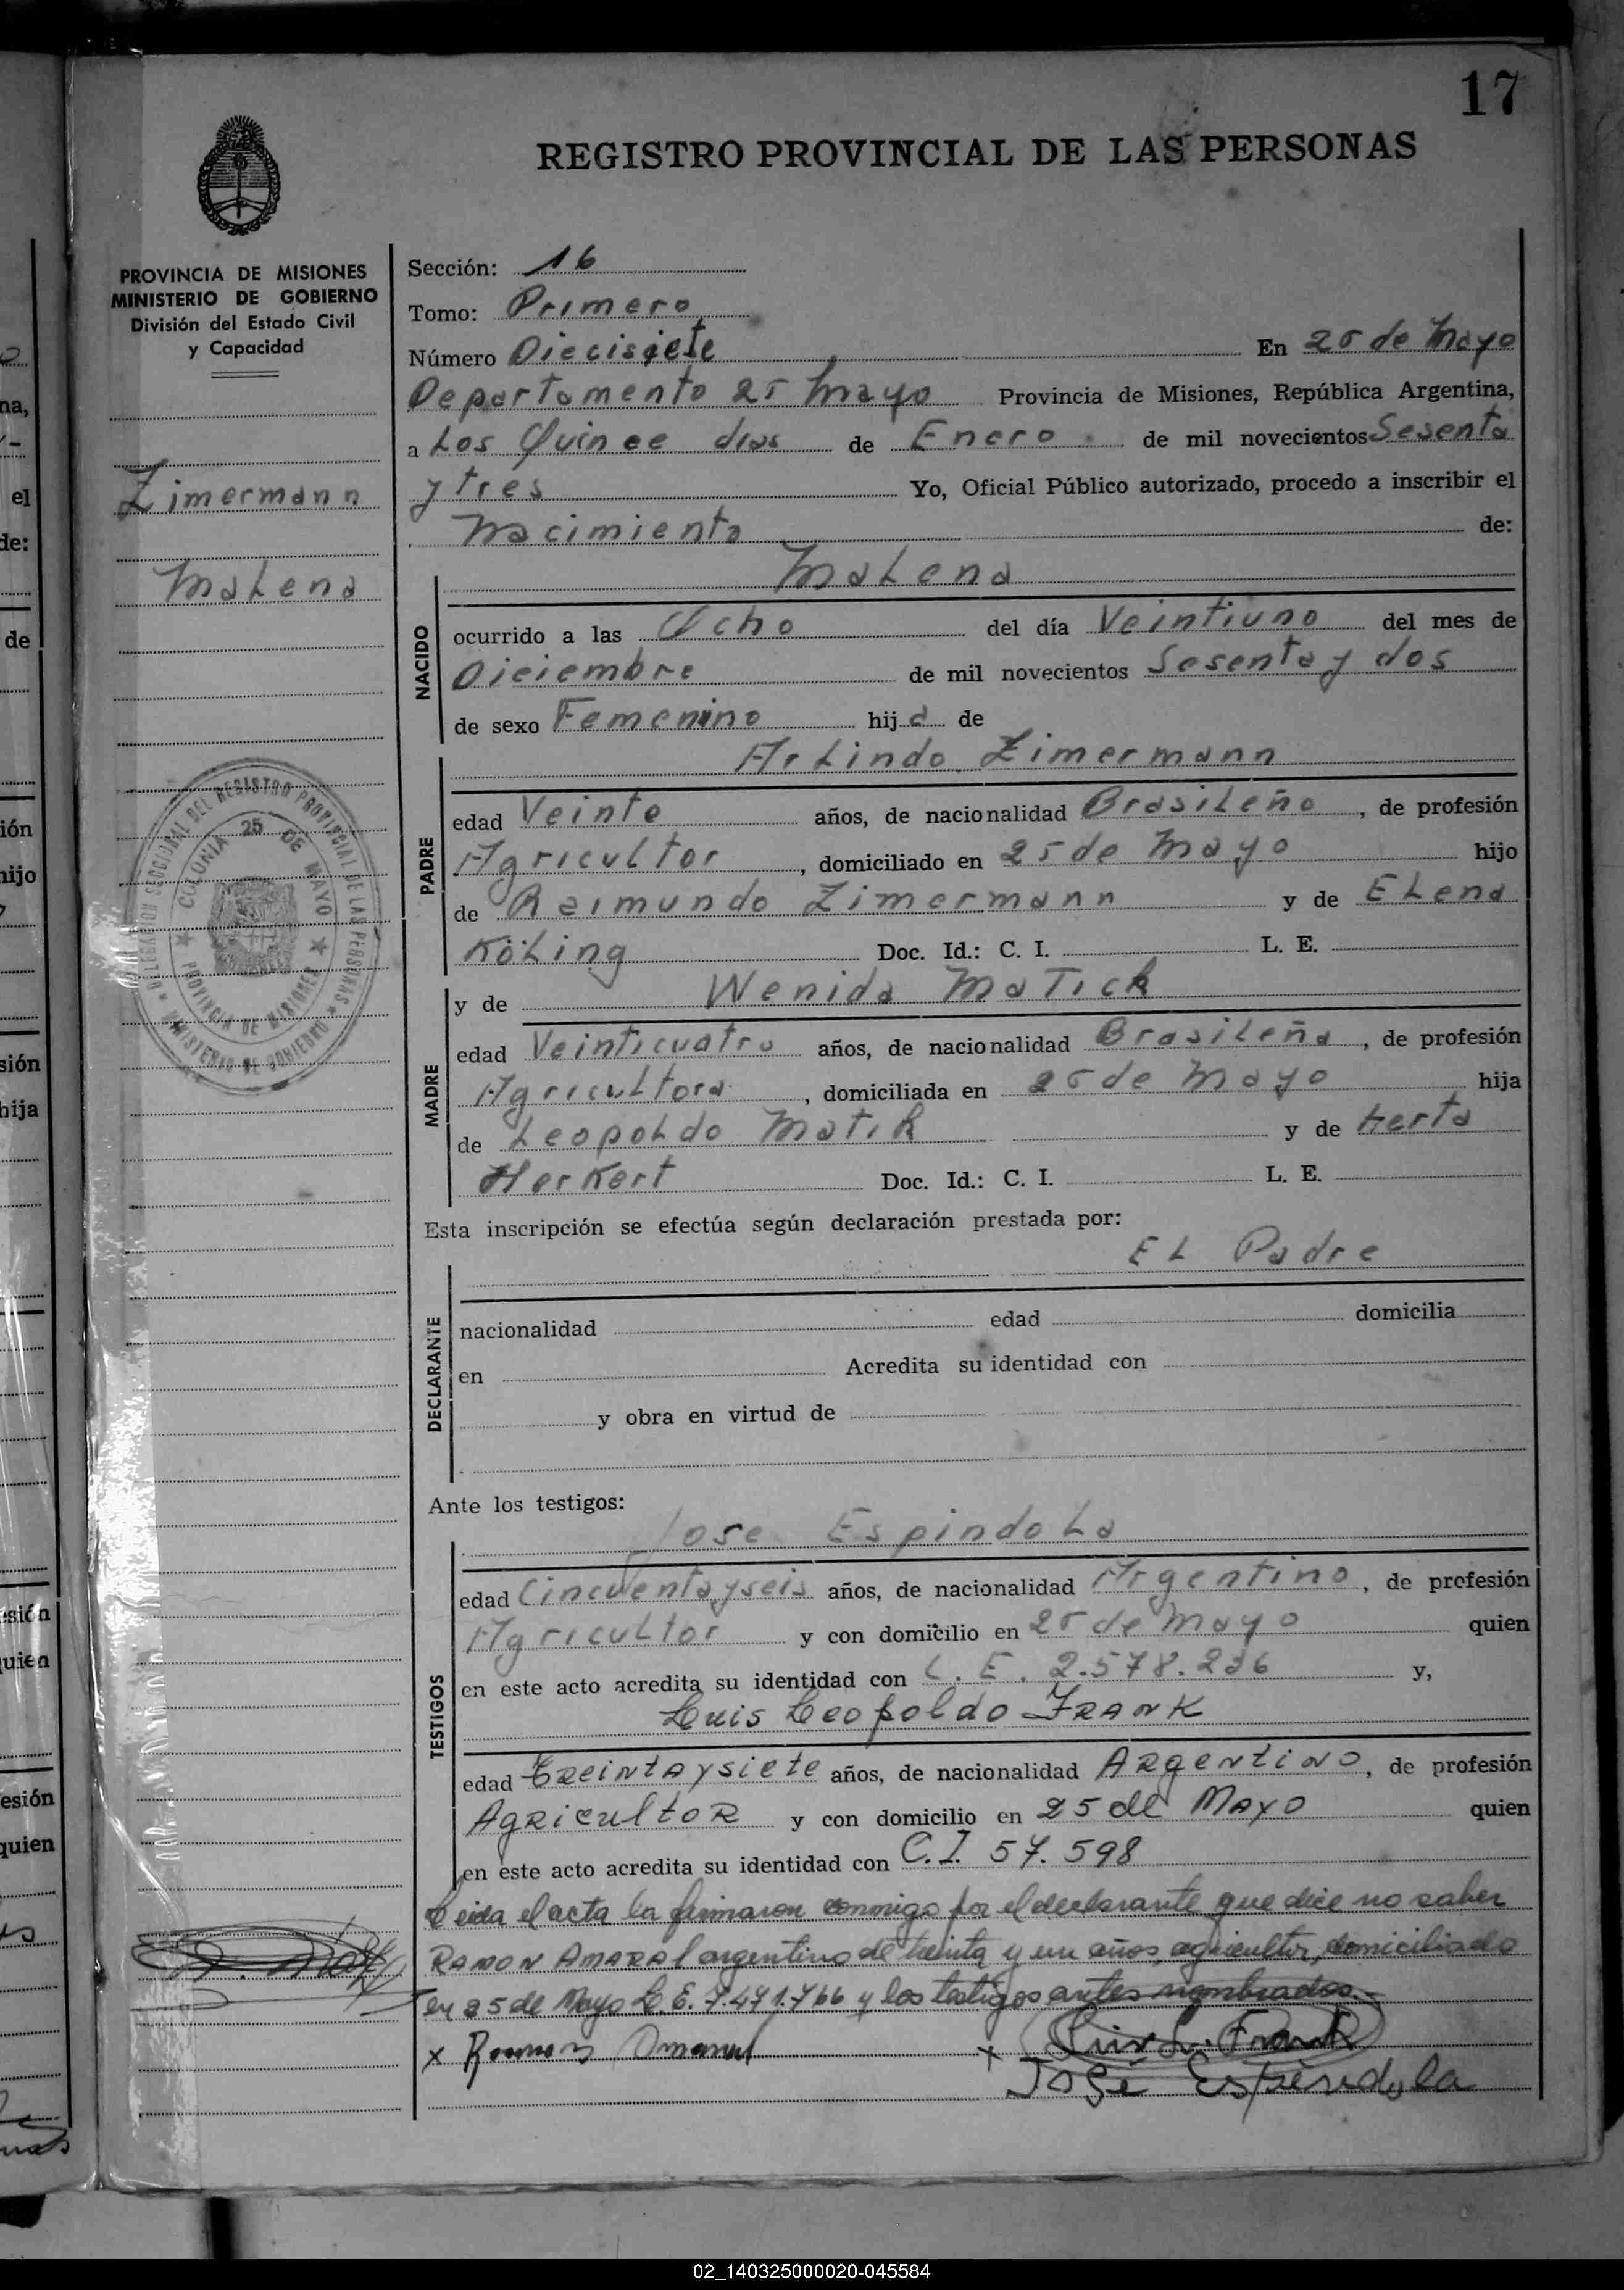 17
REGISTRO PROVINCIAL DE LAS PERSONAS
PROVINCIA DE MISIONES
MINISTERIO DE GOBIERNO
División del Estado Civil
y Capacidad
Zimermann
Malena
DELEGACION SECCIONAL DEL REGISTRO PROVINCIAL DE LAS PERSONAS
MINISTERIO DE GOBIERNO
COLONIA 25 DE MAYO
PROVINCIA DE MISIONES
Sección: 16
Tomo: Primero
Número Diecisiete En 25 de Mayo
Departamento 25 Mayo Provincia de Misiones, República Argentina,
a Los Quince dias de Enero de mil novecientos Sesenta
y tres Yo, Oficial Público autorizado, procedo a inscribir el
Nacimiento de:
Malena
NACIDO
ocurrido a las Ocho del día Veintiuno del mes de
Diciembre de mil novecientos Sesenta y dos
de sexo Femenino hija de
Arlindo Zimermann
PADRE
edad Veinte años, de nacionalidad Brasileño, de profesión
Agricultor, domiciliado en 25 de Mayo hijo
de Reimundo Zimermann y de Elena
Köling Doc. Id.: C. I. L. E.
y de Wenida Matick
MADRE
edad Veinticuatro años, de nacionalidad Brasileña, de profesión
Agricultora, domiciliada en 25 de Mayo hija
de Leopoldo Matik y de Herta
Herkert Doc. Id.: C. I. L. E.
Esta inscripción se efectúa según declaración prestada por:
El Padre
DECLARANTE
nacionalidad edad domicilia
en Acredita su identidad con
y obra en virtud de
Ante los testigos:
Jose Espindola
TESTIGOS
edad Cincuentayseis años, de nacionalidad Argentino, de profesión
Agricultor y con domicilio en 25 de Mayo quien
en este acto acredita su identidad con L. E. 2.578.236 y,
Luis Leopoldo FRANK
edad treintaysiete años, de nacionalidad Argentino, de profesión
Agricultor y con domicilio en 25 de Mayo quien
en este acto acredita su identidad con C.I. 57.598
Leida el acta la firmaron conmigo por el declarante que dice no saber
RAMON AMARAL argentino de treinta y un años, agricultor, domiciliado
en 25 de Mayo L.E. 7.471.766 y los testigos antes nombrados.-
x Ramon Amaral x Luis L. Frank
José Espindola
02_140325000020-045584